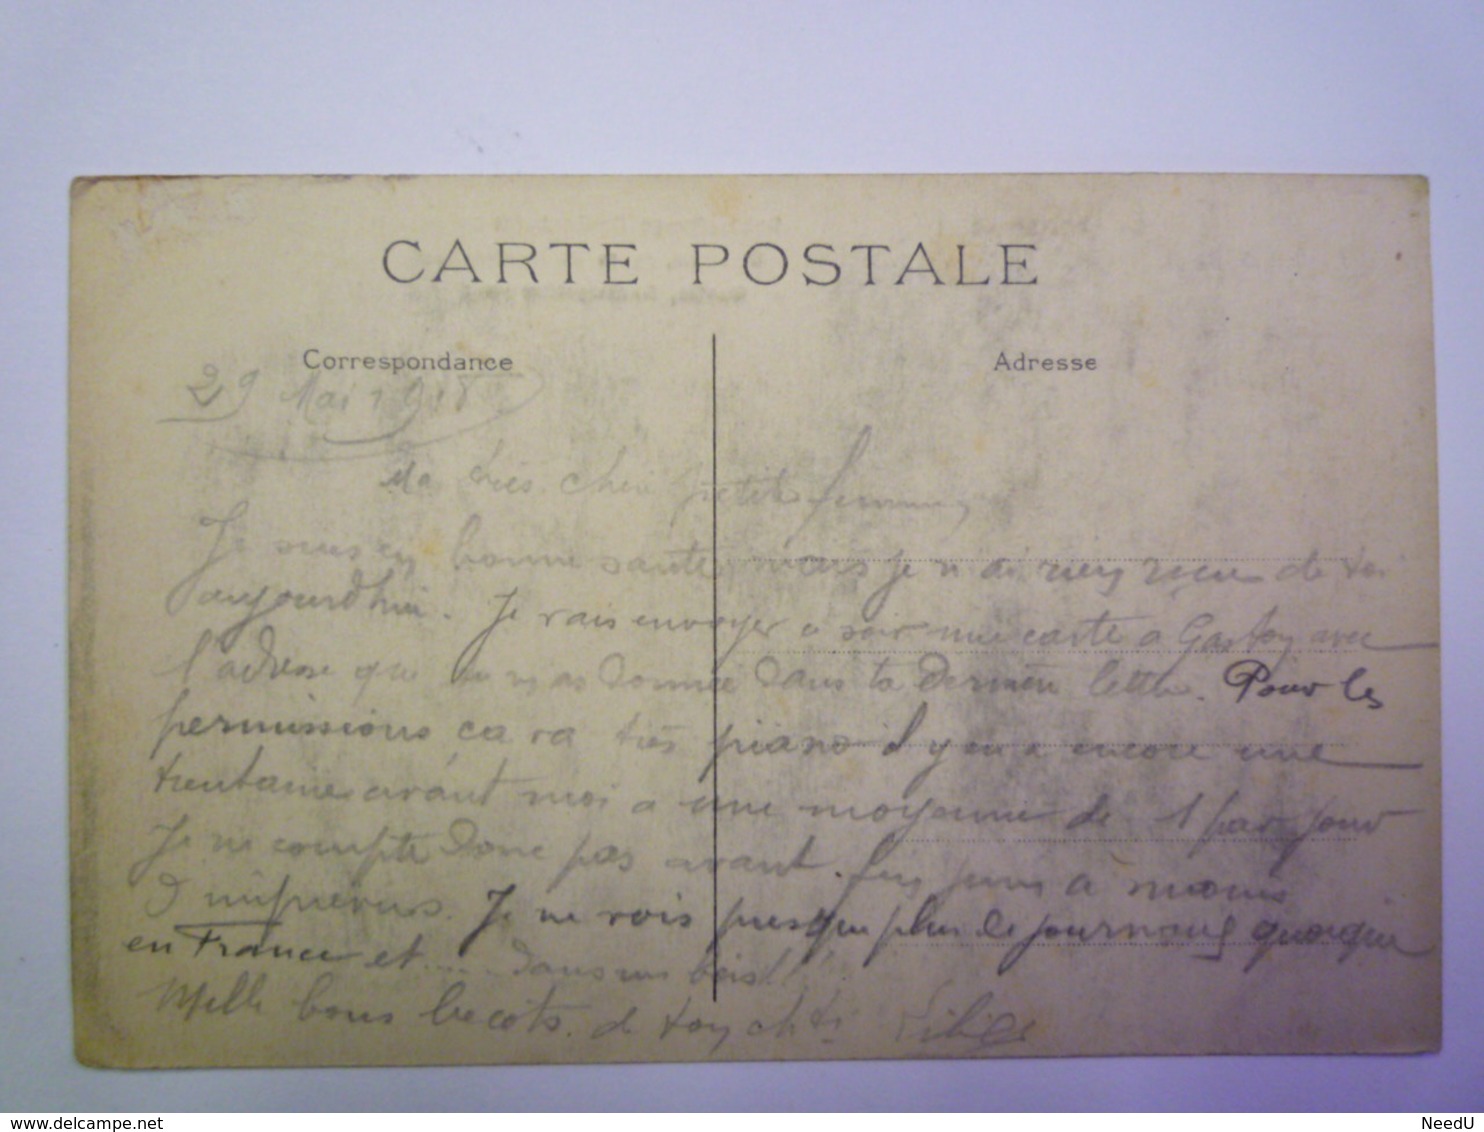 CARTE POSTALE
Correspondance
Adresse
29 Mai 1918
Ma très chère petite femme,
Je suis en bonne santé, mais je n'ai rien reçu de toi
aujourd'hui. Je vais envoyer ce soir une carte a Gaston avec
l'adresse que tu m'as donnée dans ta dernière lettre. Pour les
permissions ca va très piano il y en a encore une
trentaine avant moi a une moyenne de 1 par jour
Je ne compte donc pas avant fin juin à moins
d'imprévus. Je ne vois presque plus le journaux quoique
en France et .... dans un bois!!!
Mille bons becots. de ton
delcampe.net
NeedU